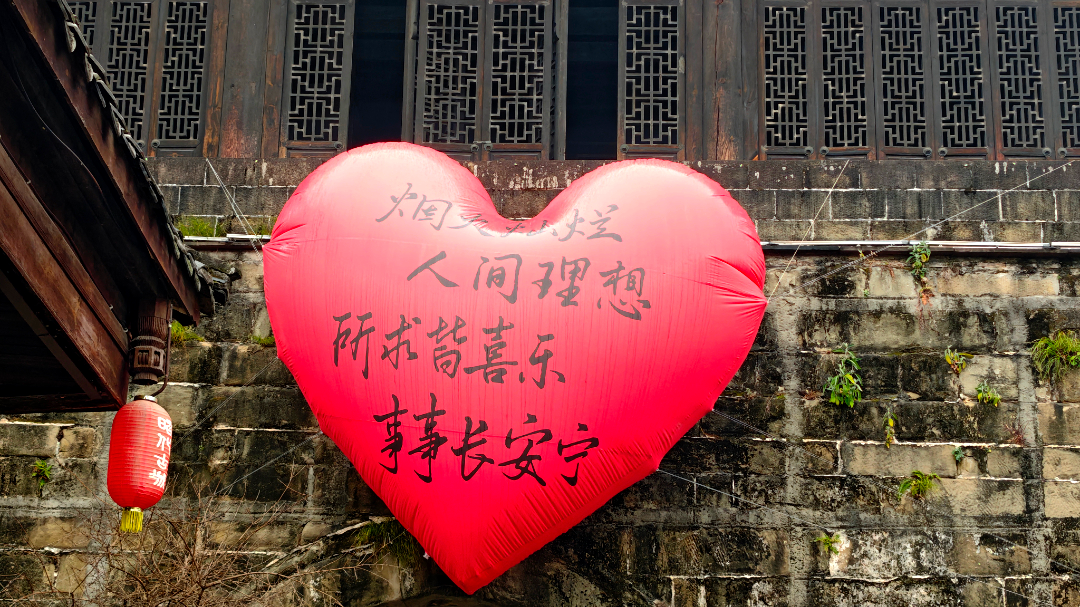 烟火灿烂
人间理想
所求皆喜乐
事事长安宁
昭化古城